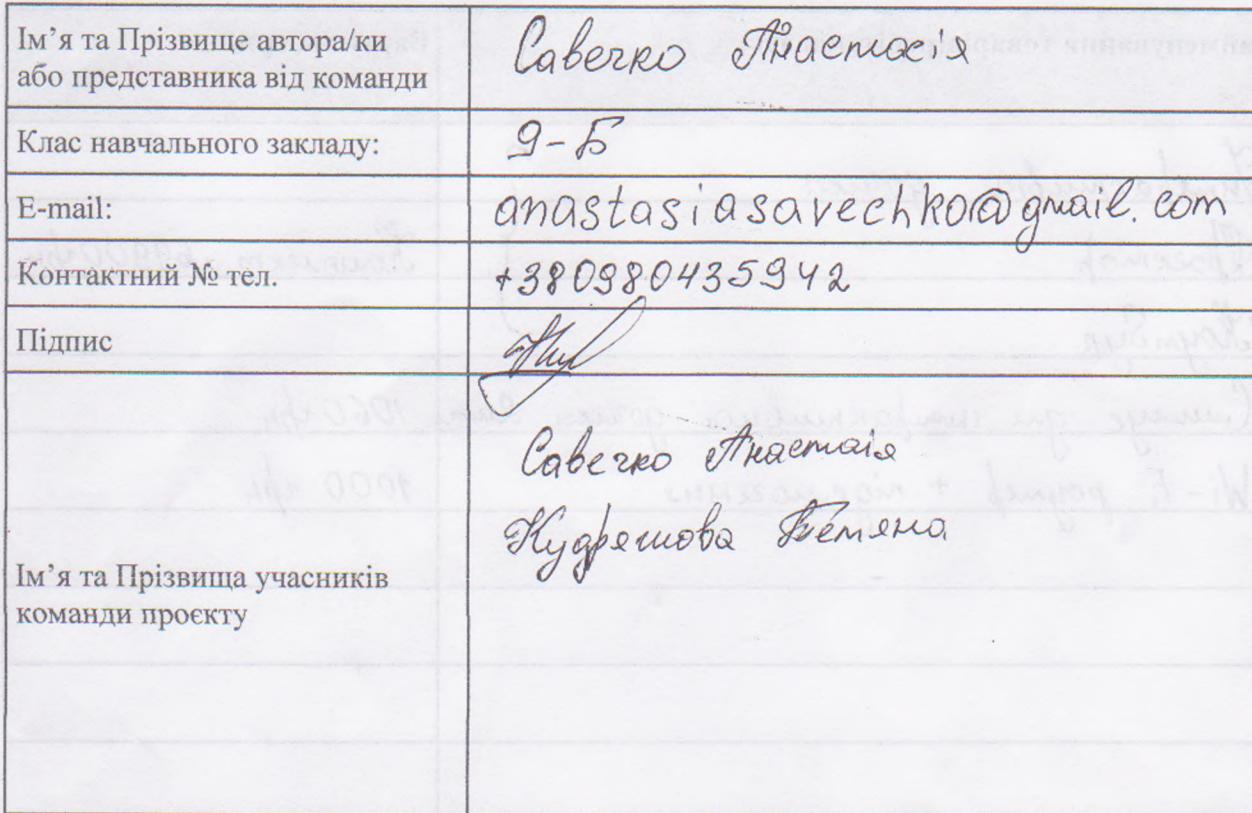 Ім’я та Прізвище автора/ки
або представника від команди
Савечко Анастасія
Клас навчального закладу:
9-Б
E-mail:
anastasiasavechko@gmail.com
Контактний № тел.
+380980435942
Підпис
Савечко Анастаія
Ім’я та Прізвища учасників
команди проєкту
Кудряшова Тетяна